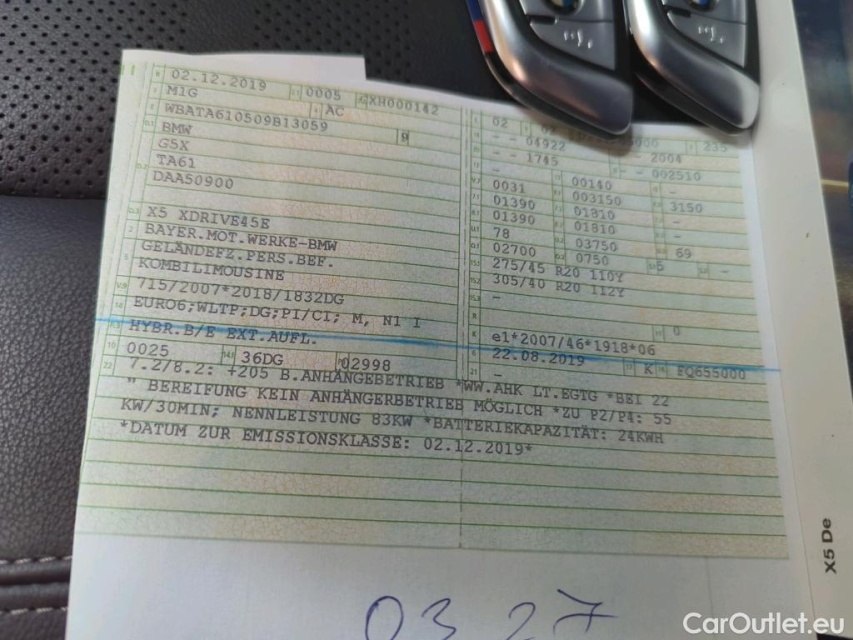 02.12.2019 0005 CXH000142
M1G AC
WBATA610509B13059 9
BMW
G5X
TA61
DAA50900
X5 XDRIVE45E
BAYER.MOT.WERKE-BMW
GELÄNDEFZ.PERS.BEF.
KOMBILIMOUSINE
715/2007*2018/1832DG
EURO6;WLTP;DG;PI/CI; M, N1 I
HYBR.B/E EXT.AUFL.
0025 36DG 02998
02 02 235
- - 04922 - - 2004
- - 1745 - - 002510
0031 00140 -
01390 003150 3150
01390 01810 -
78 01810
02700 03750 69
275/45 R20 110Y 0750 5 -
305/40 R20 112Y
-
e1*2007/46*1918*06 0
22.08.2019 K FQ655000
-
7.2/8.2: +205 B.ANHÄNGEBETRIEB *WW.AHK LT.EGTG *BEI 22
" BEREIFUNG KEIN ANHÄNGERBETRIEB MÖGLICH *ZU P2/P4: 55
KW/30MIN; NENNLEISTUNG 83KW *BATTERIEKAPAZITÄT: 24KWH
*DATUM ZUR EMISSIONSKLASSE: 02.12.2019*
03 27
X5 De
CarOutlet.eu